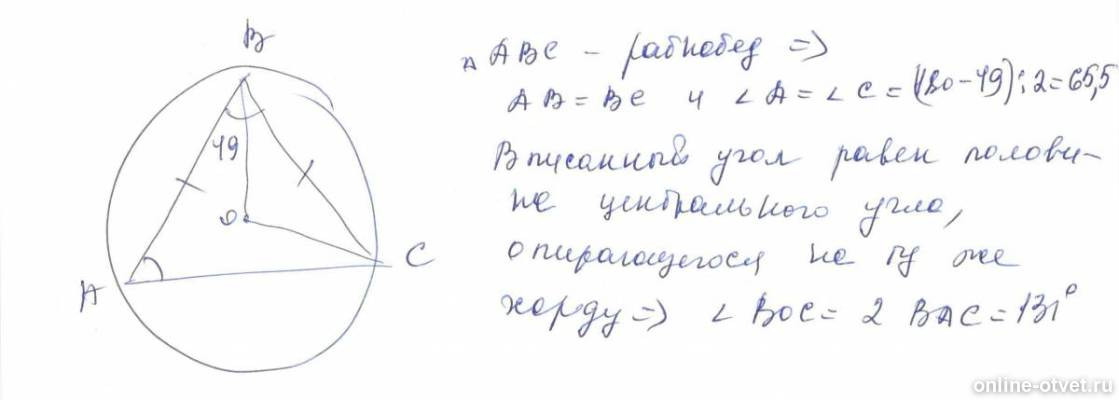 B
49
O
A
C
△ ABC – равнобед =>
AB = BC и ∠A = ∠C = (180-49):2=65,5
Вписанный угол равен полови-
не центрального угла,
опирающегося на ту же
хорду => ∠BOC = 2 BAC = 131°
online-otvet.ru